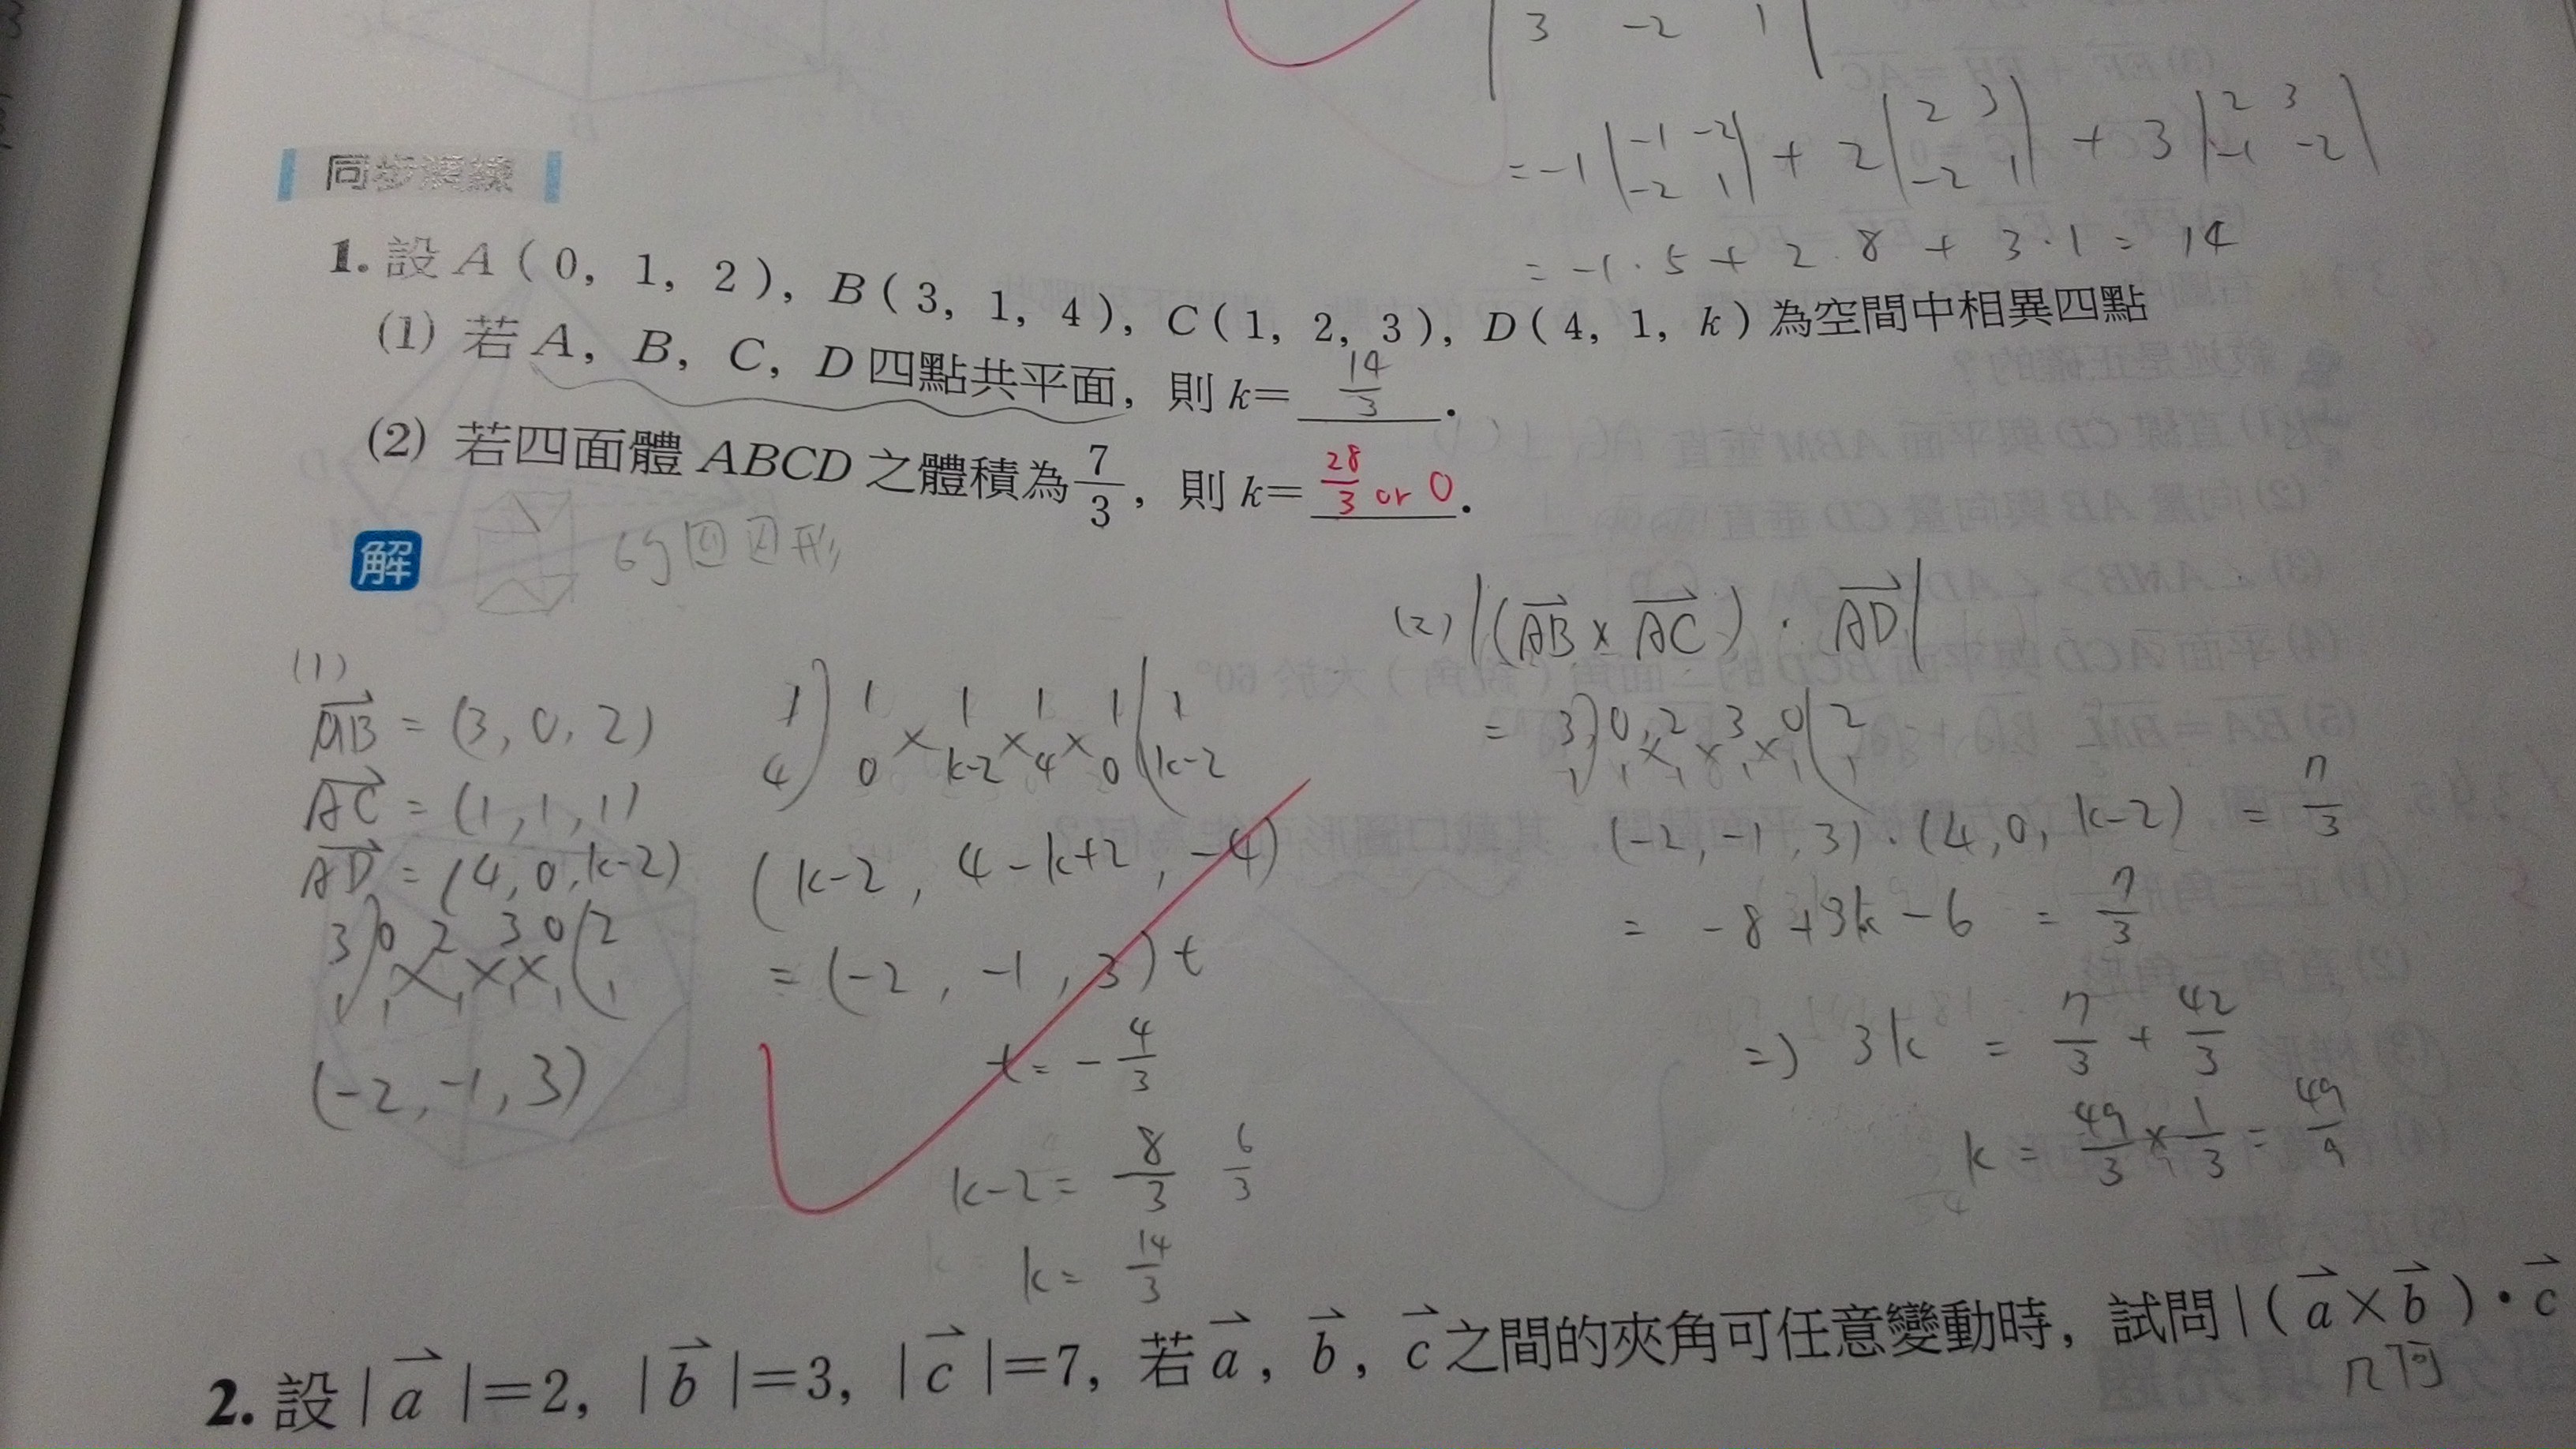 3 -2 1
= -1 | -1 -2 | + 2 | 2 3 | + 3 | 2 3 |
-2 1 -2 1 -1 -2
= -1·5 + 2·8 + 3·1 = 14
同步演練
1. 設 A(0, 1, 2), B(3, 1, 4), C(1, 2, 3), D(4, 1, k)為空間中相異四點
(1) 若 A, B, C, D 四點共平面, 則 k= 14/3 .
(2) 若四面體 ABCD 之體積為 7/3, 則 k= 28/3 or 0 .
解
(1)
AB = (3, 0, 2)
AC = (1, 1, 1)
AD = (4, 0, k-2)
3 ) 0 2 3 0 ( 2
1 1 1 1 1 1
(-2, -1, 3)
1 ) 1 1 1 1 ( 1
4 0 k-2 4 0 k-2
(k-2, 4-k+2, -4)
= (-2, -1, 3)t
t = -4/3
k-2 = 8/3 6/3
k = 14/3
(2) |(AB × AC) · AD|
= 3 ) 0 2 3 0 ( 2
1 1 1 1 1 1
(-2, -1, 3)·(4, 0, k-2) = 7/3
= -8 + 3k - 6 = 7/3
=) 3k = 7/3 + 42/3
k = 49/3 × 1/3 = 49/9
2. 設 | a |=2, | b |=3, | c |=7, 若 a, b, c 之間的夾角可任意變動時, 試問 |( a × b )· c